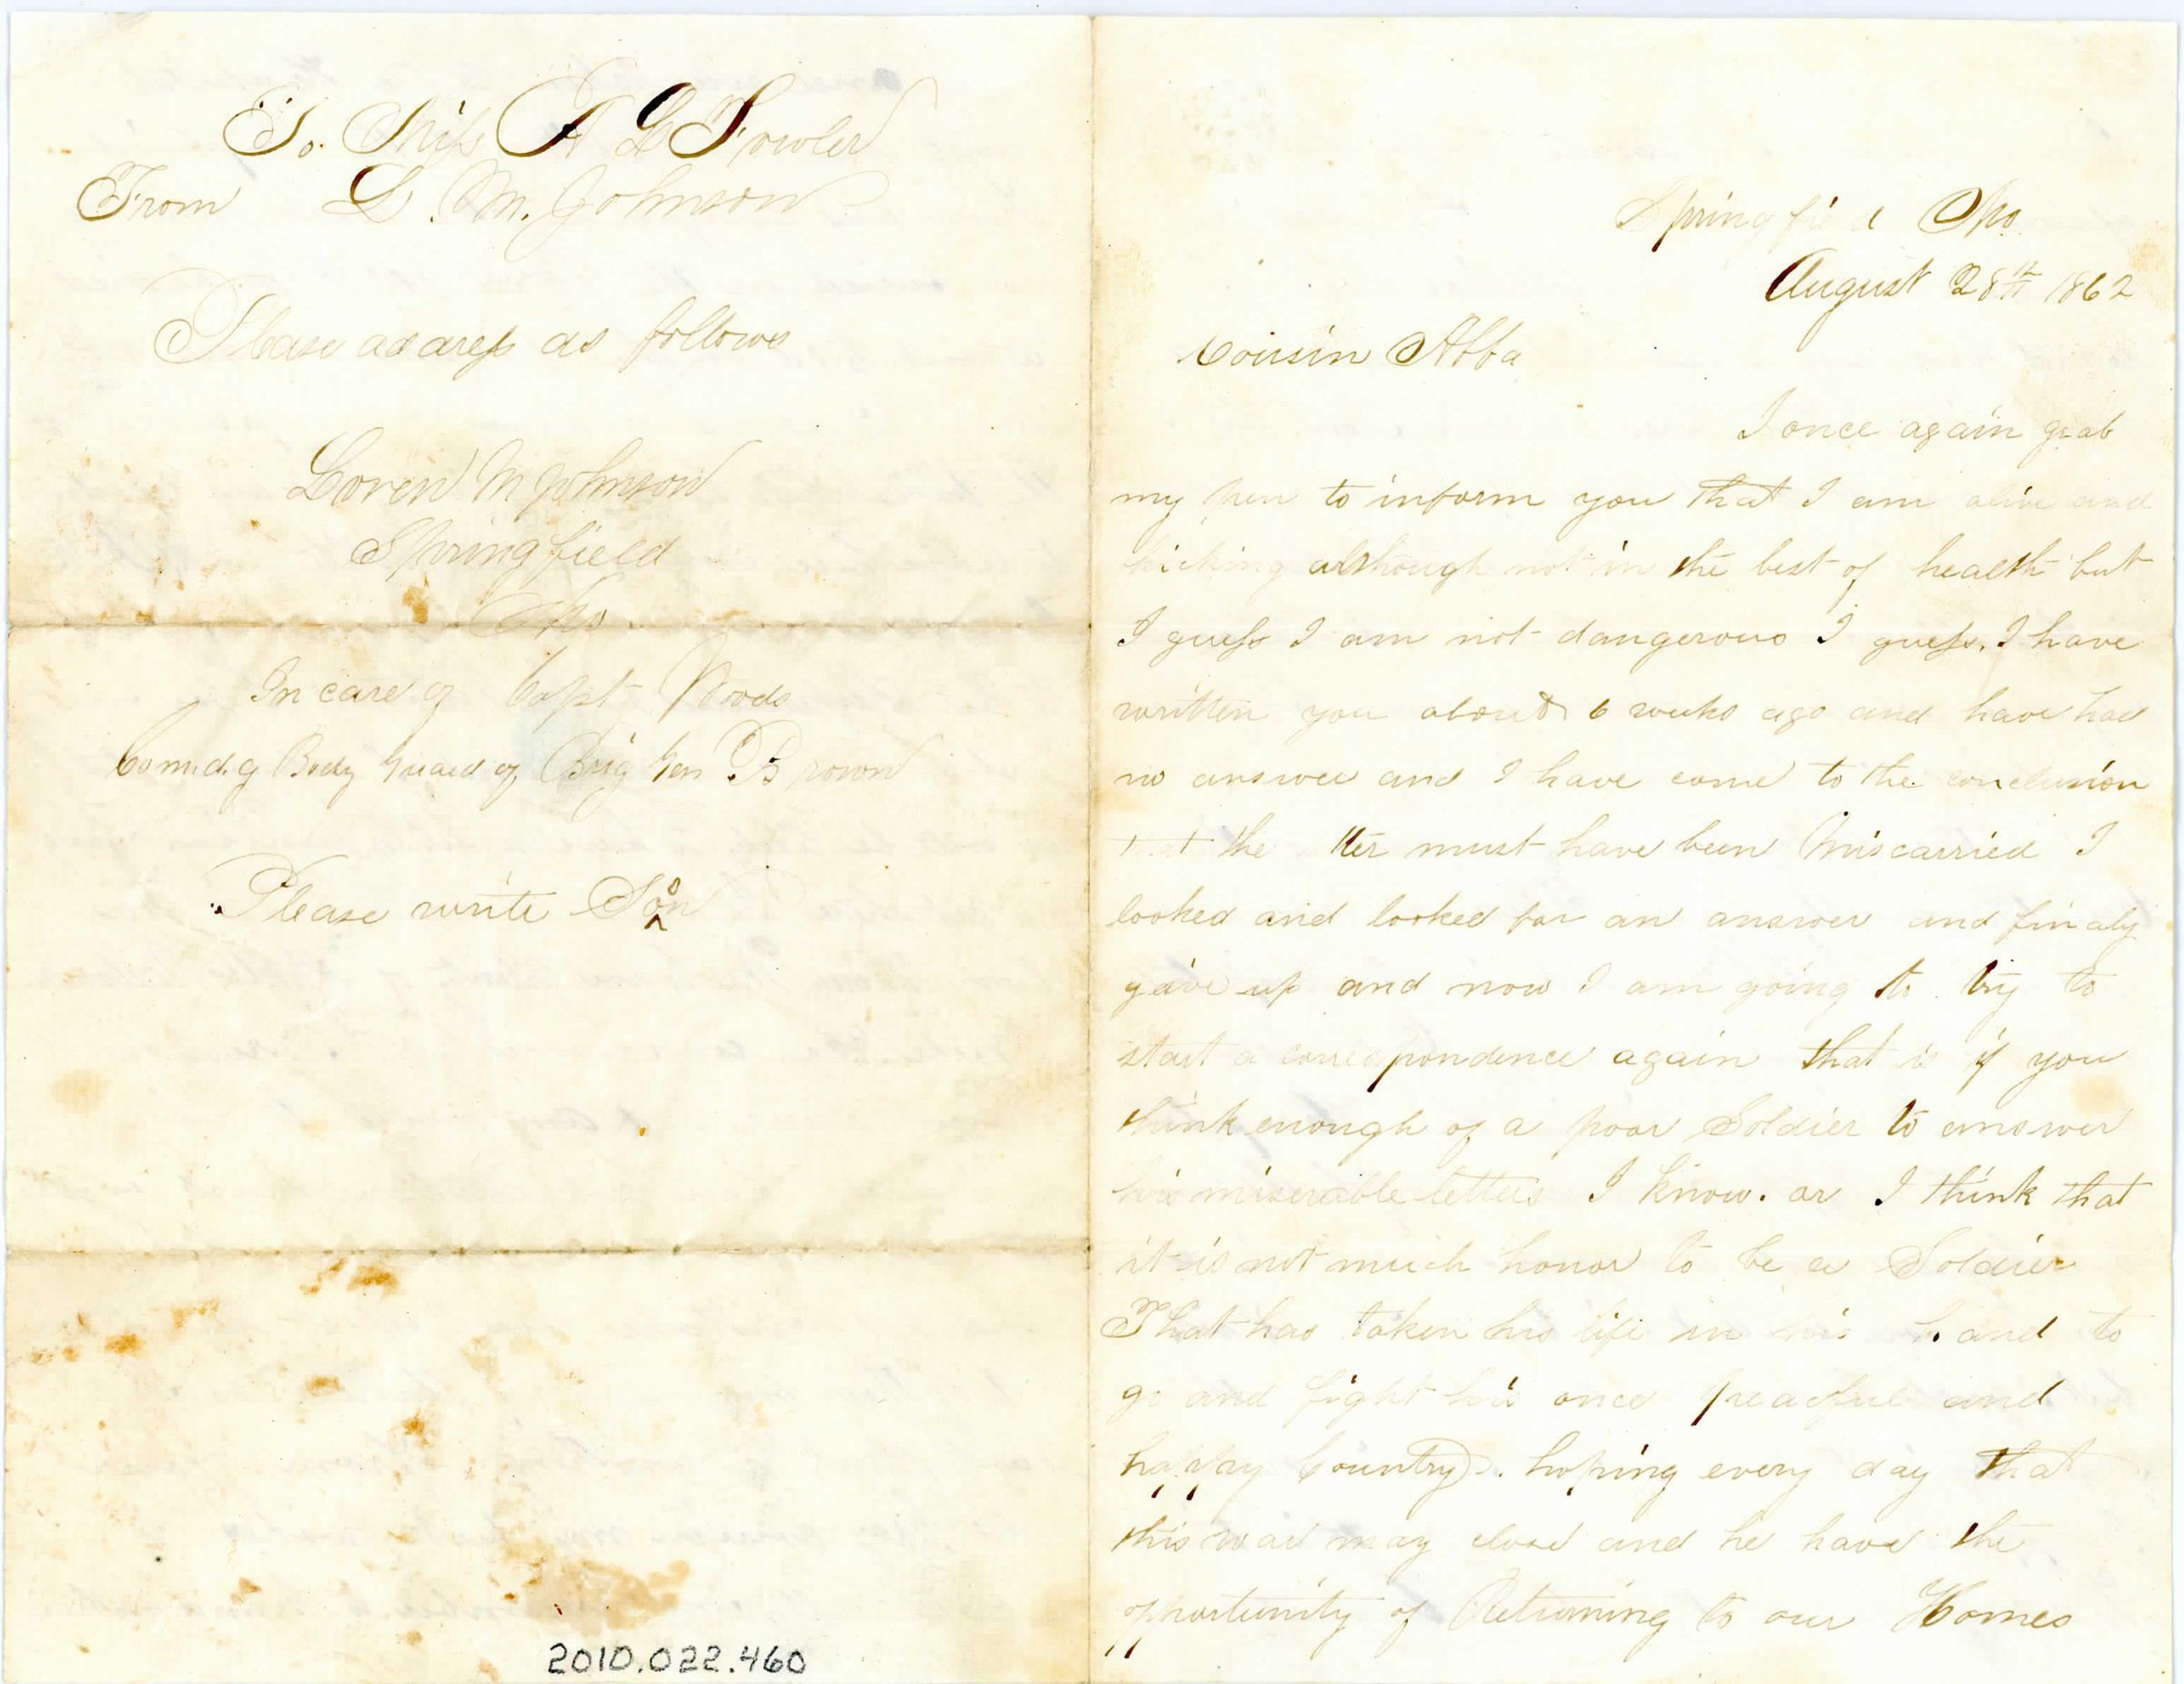 To. Miss A L Fowler
From L. M. Johnson
Please address as follows
Loren M Johnson
Springfield
Mo
In care of Capt Woods
Comdg Body Guard of Brig Gen Brown
Please write Soon
2010.022.460
Springfield Mo.
August 28th 1862
Cousin Abba
I once again grab
my pen to inform you that I am alive and
kicking although not in the best of health but
I guess I am not dangerous I guess. I have
written you about 6 weeks ago and have had
no answer and I have come to the conclusion
that the must have been Miscarried I
looked and looked for an answer and finaly
gave up and now I am going to try to
start a correspondence again that is if you
think enough of a poor Soldier to answer
his miserable letters I know. or I think that
it is not much honor to be a Soldier
That has taken his life in his hand to
go and fight his once peacful and
happy Country. hoping every day that
this war may close and he have the
opportunity of Returning to our Homes